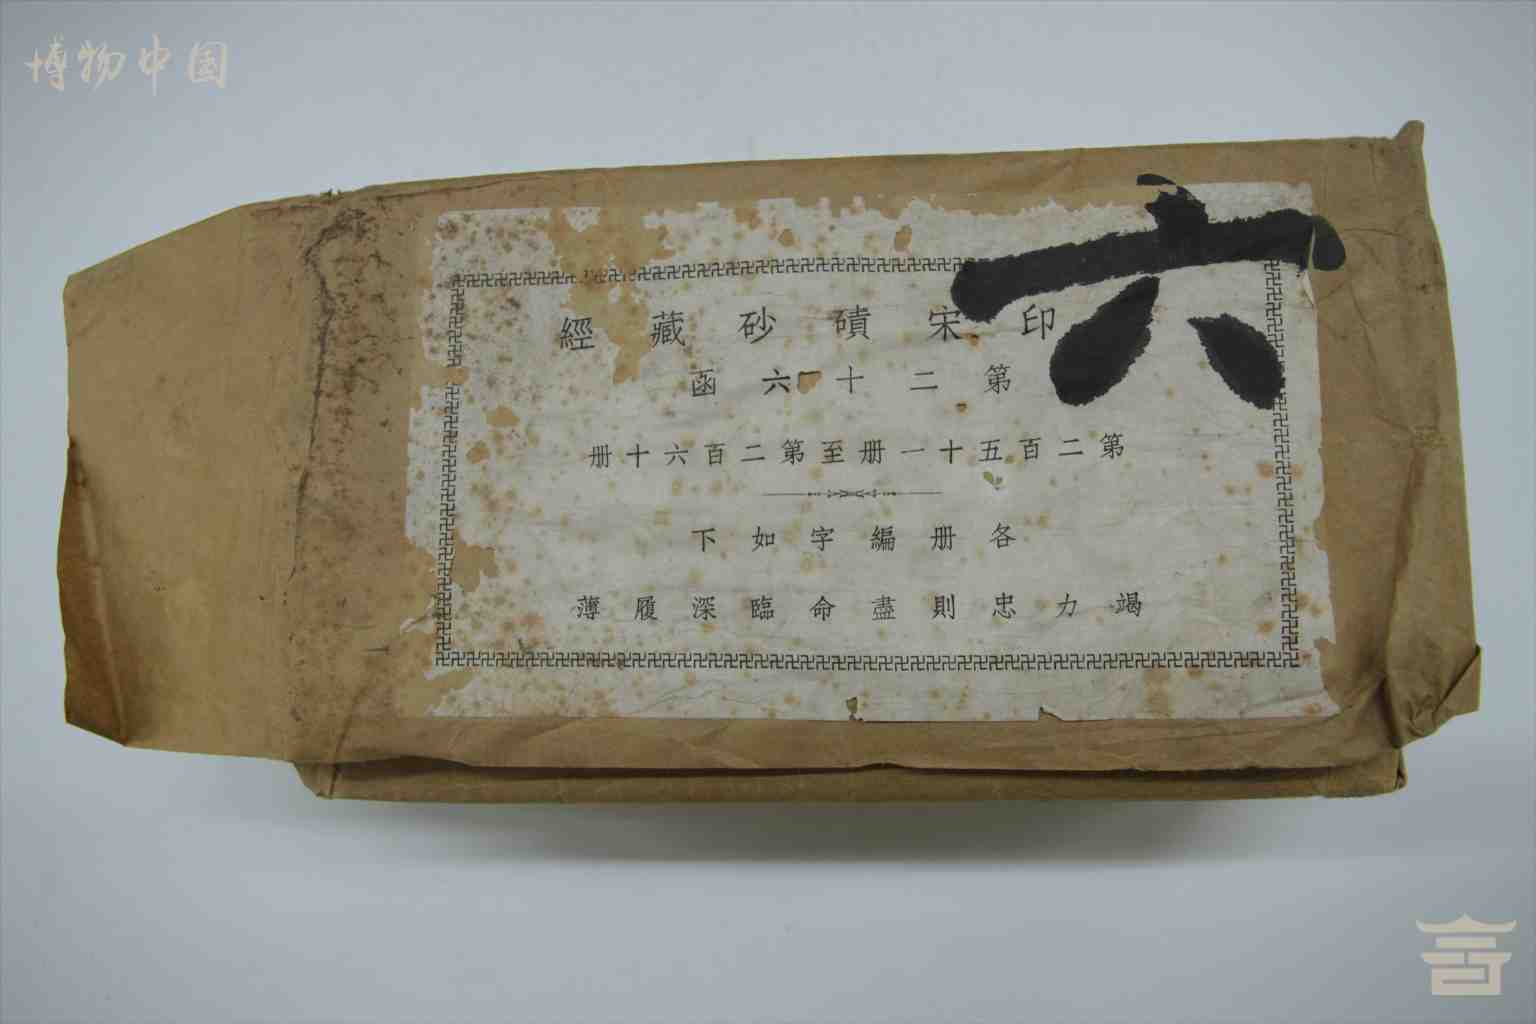 博物中国
六
印宋磧砂藏經
第二十六函
第二百五十一册至第二百六十册
各册編字如下
竭力忠則盡命臨深履薄